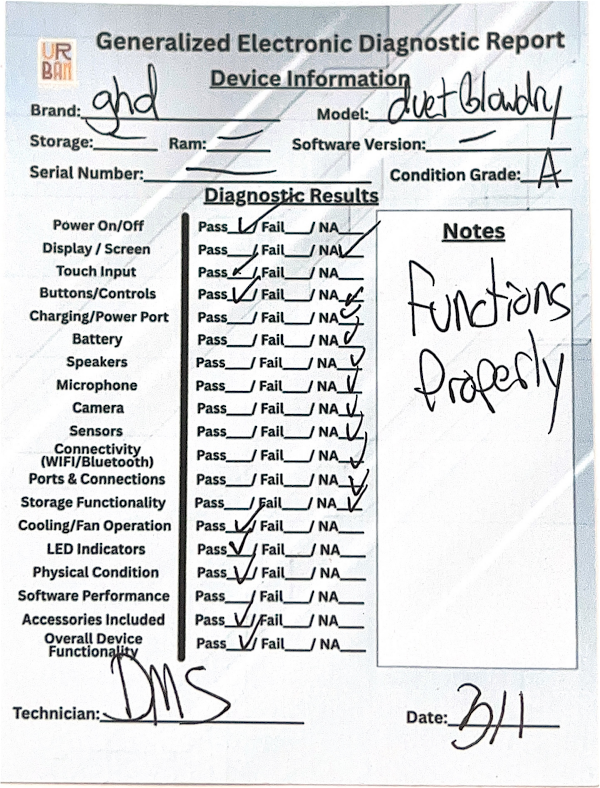 UR
BAN
Generalized Electronic Diagnostic Report
Device Information
Brand: ghd Model: duet blowdry
Storage: — Ram: — Software Version: —
Serial Number: — Condition Grade: A
Diagnostic Results
Power On/Off Pass ✓ / Fail___/ NA___
Display / Screen Pass___/ Fail___/ NA ✓
Touch Input Pass ✓ / Fail___/ NA___
Buttons/Controls Pass ✓ / Fail___/ NA ✓
Charging/Power Port Pass___/ Fail___/ NA ✓
Battery Pass___/ Fail___/ NA ✓
Speakers Pass___/ Fail___/ NA ✓
Microphone Pass___/ Fail___/ NA ✓
Camera Pass___/ Fail___/ NA ✓
Sensors Pass___/ Fail___/ NA ✓
Connectivity
(WIFI/Bluetooth) Pass___/ Fail___/ NA ✓
Ports & Connections Pass___/ Fail___/ NA ✓
Storage Functionality Pass___/ Fail___/ NA ✓
Cooling/Fan Operation Pass ✓ / Fail___/ NA___
LED Indicators Pass ✓ / Fail___/ NA___
Physical Condition Pass ✓ / Fail___/ NA___
Software Performance Pass___/ Fail___/ NA___
Accessories Included Pass ✓ / Fail___/ NA___
Overall Device
Functionality Pass ✓ / Fail___/ NA___
Notes
Functions
Properly
Technician: DMS Date: 3/1